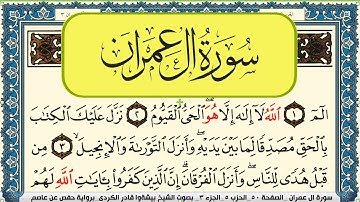 سورة آل عمران
الٓمٓ ١ ٱللَّهُ لَآ إِلَٰهَ إِلَّا هُوَ ٱلۡحَيُّ ٱلۡقَيُّومُ ٢ نَزَّلَ عَلَيۡكَ ٱلۡكِتَٰبَ
بِٱلۡحَقِّ مُصَدِّقٗا لِّمَا بَيۡنَ يَدَيۡهِ وَأَنزَلَ ٱلتَّوۡرَىٰةَ وَٱلۡإِنجِيلَ ٣ مِن
قَبۡلُ هُدٗى لِّلنَّاسِ وَأَنزَلَ ٱلۡفُرۡقَانَۗ إِنَّ ٱلَّذِينَ كَفَرُواْ بِـَٔايَٰتِ ٱللَّهِ لَهُمۡ
سورة ال عمران - الصفحة ٥٠ - الحزب ٥ - الجزء ٣ - بصوت الشيخ بيشةوا قادر الكردي - برواية حفص عن عاصم